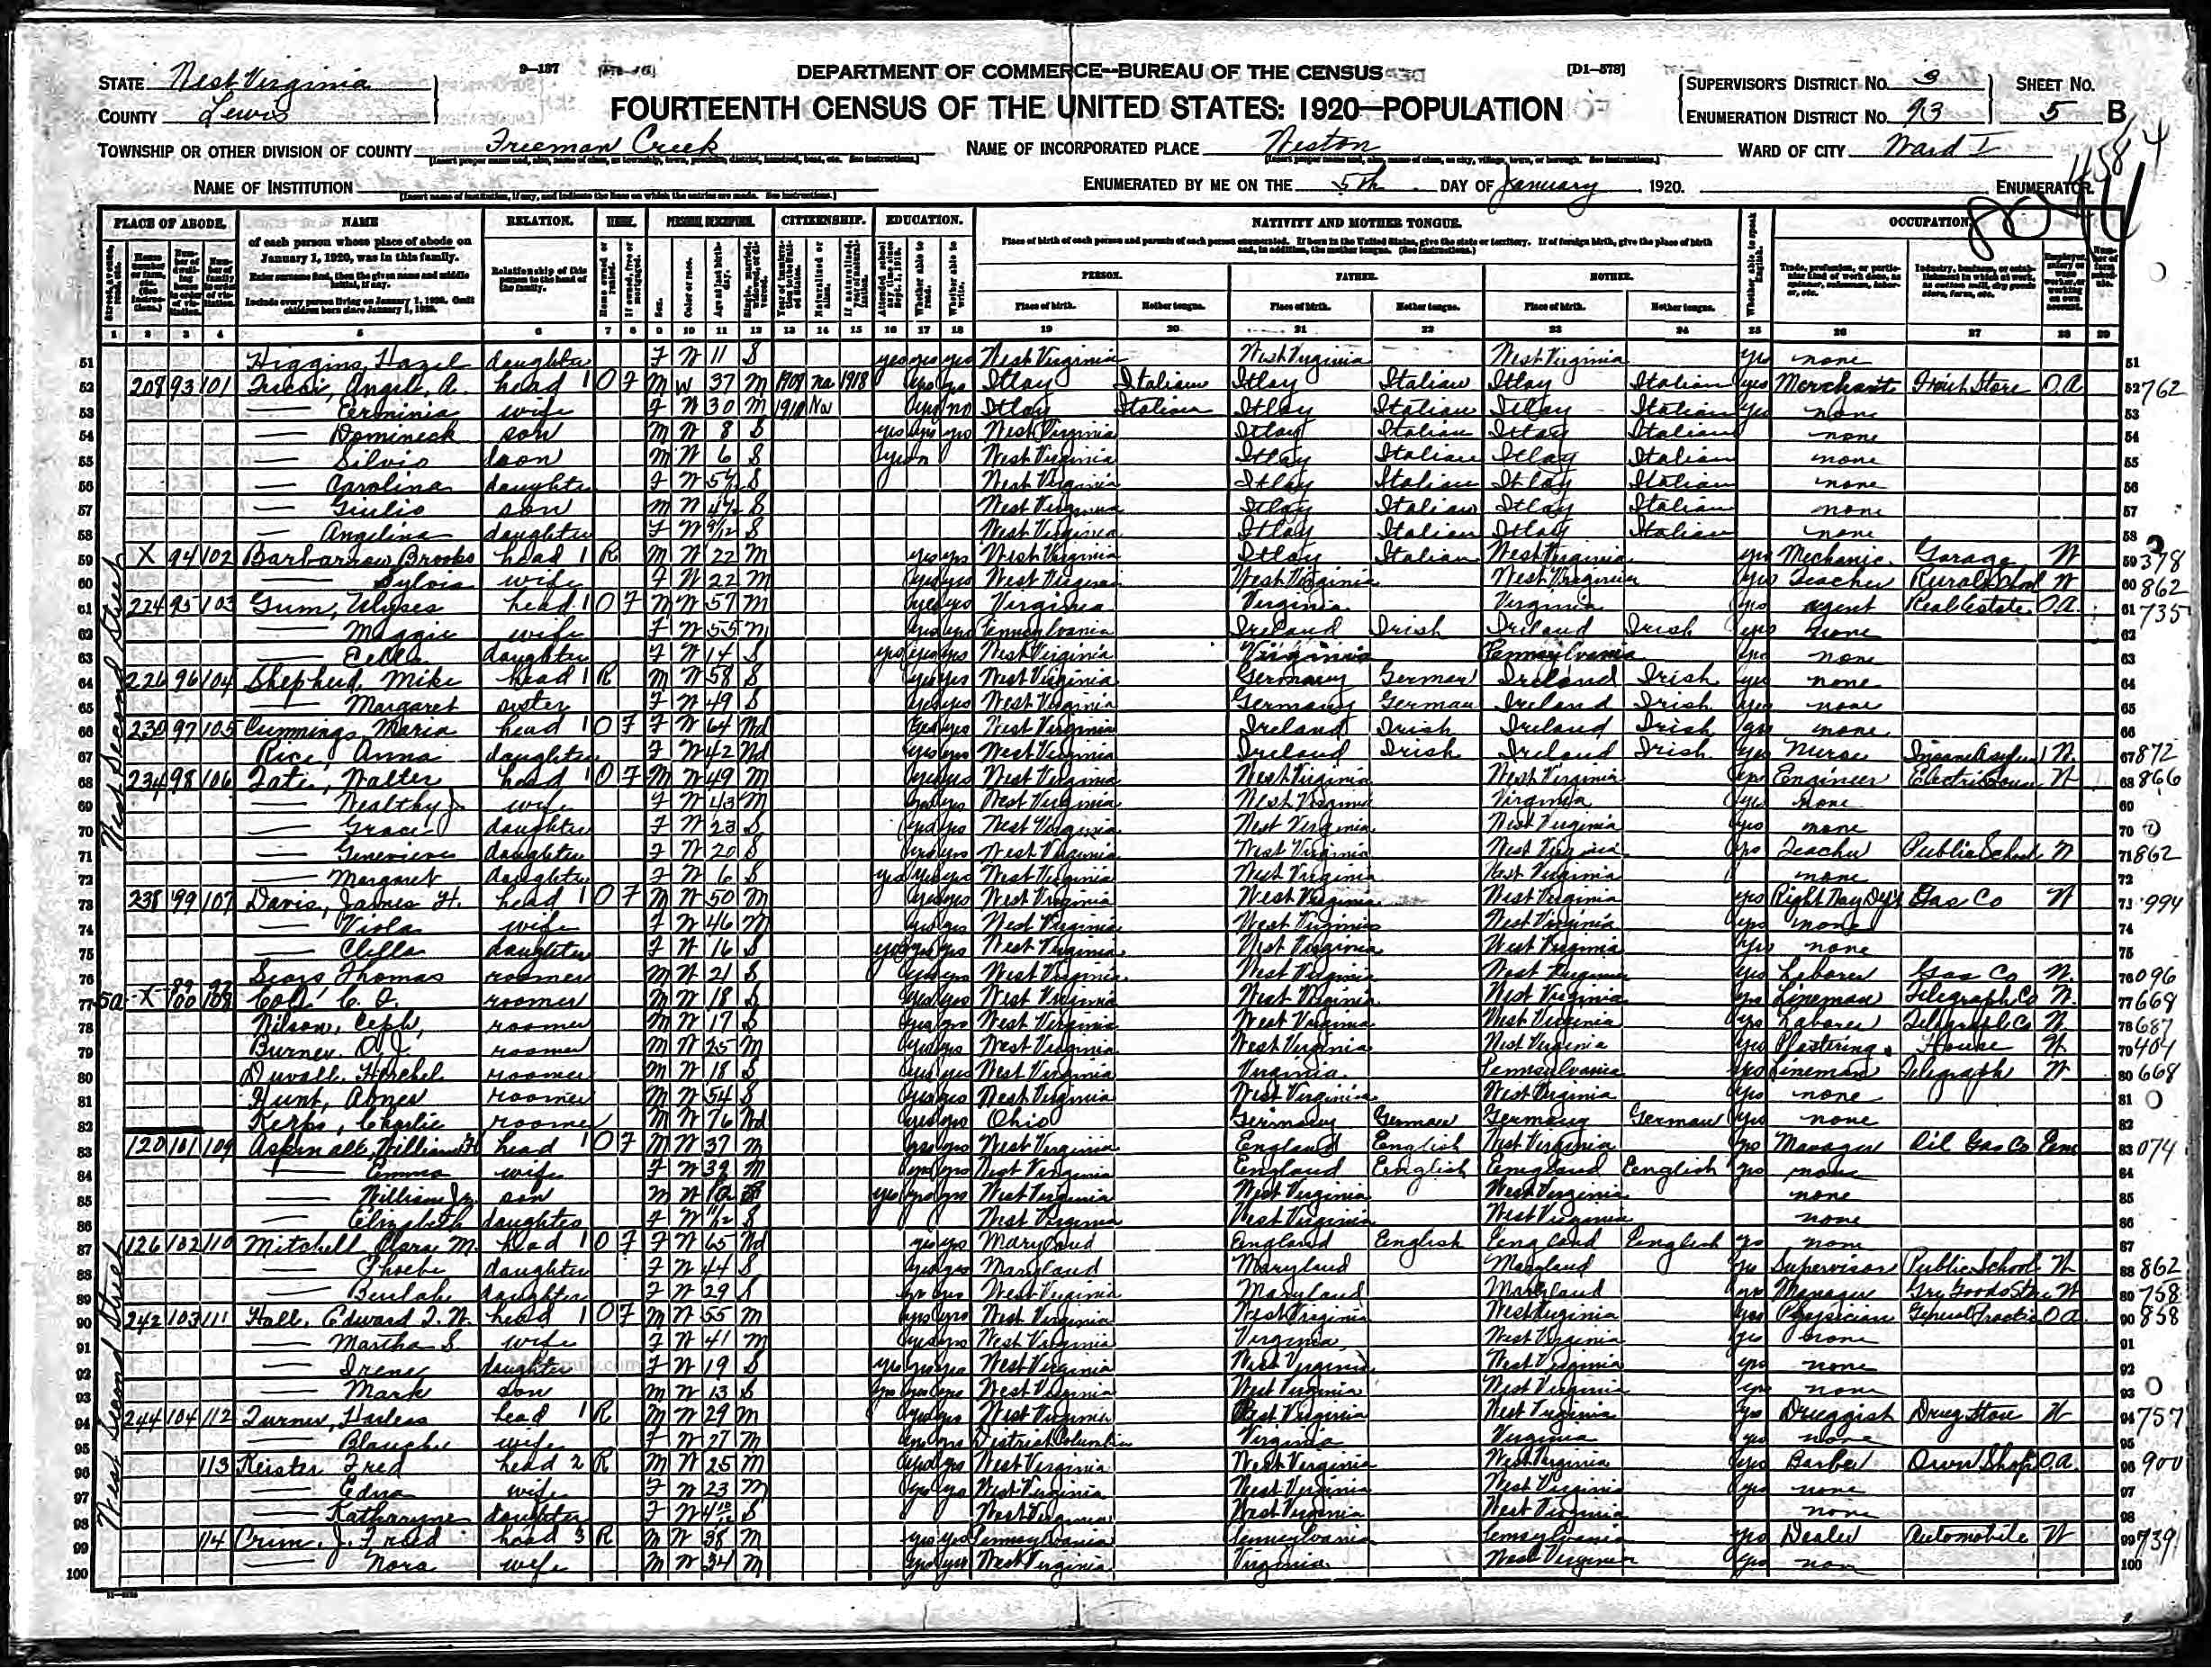 9-137
DEPARTMENT OF COMMERCE—BUREAU OF THE CENSUS
[D1-578]
FOURTEENTH CENSUS OF THE UNITED STATES: 1920—POPULATION
STATE West Virginia
COUNTY Lewis
SUPERVISOR'S DISTRICT No. 3
ENUMERATION DISTRICT No. 93
SHEET No. 5 B
TOWNSHIP OR OTHER DIVISION OF COUNTY Freeman Creek
NAME OF INCORPORATED PLACE Weston
WARD OF CITY Ward I
NAME OF INSTITUTION
ENUMERATED BY ME ON THE 5th DAY OF January 1920.
ENUMERATOR.
PLACE OF ABODE. NAME RELATION. PERSONAL DESCRIPTION. CITIZENSHIP. EDUCATION. NATIVITY AND MOTHER TONGUE. OCCUPATION.
of each person whose place of abode on January 1, 1920, was in this family.
Relationship of this person to the head of the family.
PERSON. FATHER. MOTHER.
Place of birth. Mother tongue. Place of birth. Mother tongue. Place of birth. Mother tongue.
1 2 3 4 5 6 7 8 9 10 11 12 13 14 15 16 17 18 19 20 21 22 23 24 25 26 27 28 29
West Second Street
51 Higgins, Hazel daughter F W 11 S yes yes yes West Virginia West Virginia West Virginia yes none 51
52 208 93 101 Angelo, A. head 1 O F M W 37 M 1909 na 1918 yes yes Itlay Italian Itlay Italian Itlay Italian yes Merchant Store O.A 52 762
53 Erminia wife F W 30 M 1910 Na yes no Itlay Italian Itlay Italian Itlay Italian yes none 53
54 Domineck son M W 8 S yes yes yes West Virginia Itlay Italian Itlay Italian none 54
55 Silvio son M W 6 S West Virginia Itlay Italian Itlay Italian none 55
56 Carolina daughter F W S West Virginia Itlay Italian Itlay Italian none 56
57 Giulio son M W S West Virginia Itlay Italian Itlay Italian none 57
58 Angelina daughter F W 9/12 S West Virginia Itlay Italian Itlay Italian none 58
59 X 94 102 Brooks head 1 R M W 22 M yes yes West Virginia Itlay Italian West Virginia yes Mechanic Garage W 59 378
60 Sylvia wife F W 22 M yes yes West Virginia West Virginia West Virginia yes Teacher Rural School W 60 862
61 224 95 103 Gum, Ulyses head 1 O F M W 57 M yes yes Virginia Virginia Virginia yes agent Real Estate O.A. 61 735
62 Maggie wife F W 55 M yes yes Pennsylvania Ireland Irish Ireland Irish yes none 62
63 daughter F W 14 S yes yes yes West Virginia Virginia Pennsylvania yes none 63
64 226 96 104 Shepherd, Mike head 1 R M W 58 S yes yes West Virginia Germany German Ireland Irish yes none 64
65 Margaret sister F W 49 S yes yes West Virginia Germany German Ireland Irish yes none 65
66 230 97 105 Cummings, Maria head 1 O F F W 64 Wd yes yes West Virginia Ireland Irish Ireland Irish yes none 66
67 Rice, Anna daughter F W 42 Wd yes yes West Virginia Ireland Irish Ireland Irish yes Nurse Insane Asylum W. 67 872
68 234 98 106 Tate, Walter head 1 O F M W 49 M yes yes West Virginia West Virginia West Virginia yes Engineer W 68 866
69 Wealthy J. wife F W 43 M yes yes West Virginia West Virginia Virginia yes none 69
70 Grace daughter F W 23 S yes yes West Virginia West Virginia West Virginia yes none 70
71 Genevieve daughter F W 20 S yes yes West Virginia West Virginia West Virginia yes Teacher Public School W 71 862
72 Margaret daughter F W 6 S yes yes yes West Virginia West Virginia West Virginia none 72
73 238 99 107 Davis, James H. head 1 O F M W 50 M yes yes West Virginia West Virginia West Virginia yes Right Way Gas Co W 73 994
74 Viola wife F W 46 M yes yes West Virginia West Virginia West Virginia yes none 74
75 Clella daughter F W 16 S yes yes yes West Virginia West Virginia West Virginia yes none 75
76 Sears Thomas roomer M W 21 S yes yes West Virginia West Virginia West Virginia yes Laborer Gas Co W. 76 096
77 5a X 100 108 C. O. roomer M W 18 S yes yes West Virginia West Virginia West Virginia yes Lineman Telegraph Co W. 77 668
78 Wilson, Ceph, roomer M W 17 S yes yes West Virginia West Virginia West Virginia yes Laborer Telegraph Co W. 78 687
79 Burner, O. J. roomer M W 25 M yes yes West Virginia West Virginia West Virginia yes Plastering House W 79 404
80 Duvall, Hershel roomer M W 18 S yes yes West Virginia Virginia Pennsylvania yes Lineman Telegraph W 80 668
81 Hunt, Abner roomer M W 54 S yes yes West Virginia West Virginia West Virginia yes none 81
82 Charlie roomer M W 76 Wd yes yes Ohio Germany German Germany German yes none 82
83 120 101 109 Aspinall, William H head 1 O F M W 37 M yes yes West Virginia England English West Virginia yes Manager Oil Gas Co Em 83 074
84 Emma wife F W 39 M yes yes West Virginia England English England English yes none 84
85 William Jr. son M W S yes yes yes West Virginia West Virginia West Virginia none 85
86 Elizabeth daughter F W S West Virginia West Virginia West Virginia none 86
87 126 102 110 Mitchell Clara M. head 1 O F F W 65 Wd yes yes Maryland England English England English yes none 87
88 Phoebe daughter F W 44 S yes yes Maryland Maryland Maryland yes Supervisor Public School W 88 862
89 Beulah daughter F W 29 S yes yes West Virginia Maryland Maryland yes Manager Dry Goods Store W 89 758
90 242 103 111 Hall, Edward T. W. head 1 O F M W 55 M yes yes West Virginia West Virginia West Virginia yes Physician General Practice O.A. 90 858
91 Martha S. wife F W 41 M yes yes West Virginia Virginia West Virginia yes none 91
92 Irene daughter F W 19 S yes yes yes West Virginia West Virginia West Virginia yes none 92
93 Mark son M W 13 S yes yes yes West Virginia West Virginia West Virginia yes none 93
94 244 104 112 Turner, Harless head 1 R M W 29 M yes yes West Virginia West Virginia West Virginia yes Druggist Drug Store W 94 757
95 Blanche wife F W 27 M yes yes District Columbia Virginia Virginia yes none 95
96 113 Keister Fred head 2 R M W 25 M yes yes West Virginia West Virginia West Virginia yes Barber Own Shop O.A. 96 900
97 Edna wife F W 23 M yes yes West Virginia West Virginia West Virginia yes none 97
98 Katharyne daughter F W S West Virginia West Virginia West Virginia none 98
99 114 Crim, J. Freed head 3 R M W 38 M yes yes Pennsylvania Pennsylvania Pennsylvania yes Dealer Automobile W 99 739
100 Nora wife M W 34 M yes yes West Virginia Virginia West Virginia yes non 100